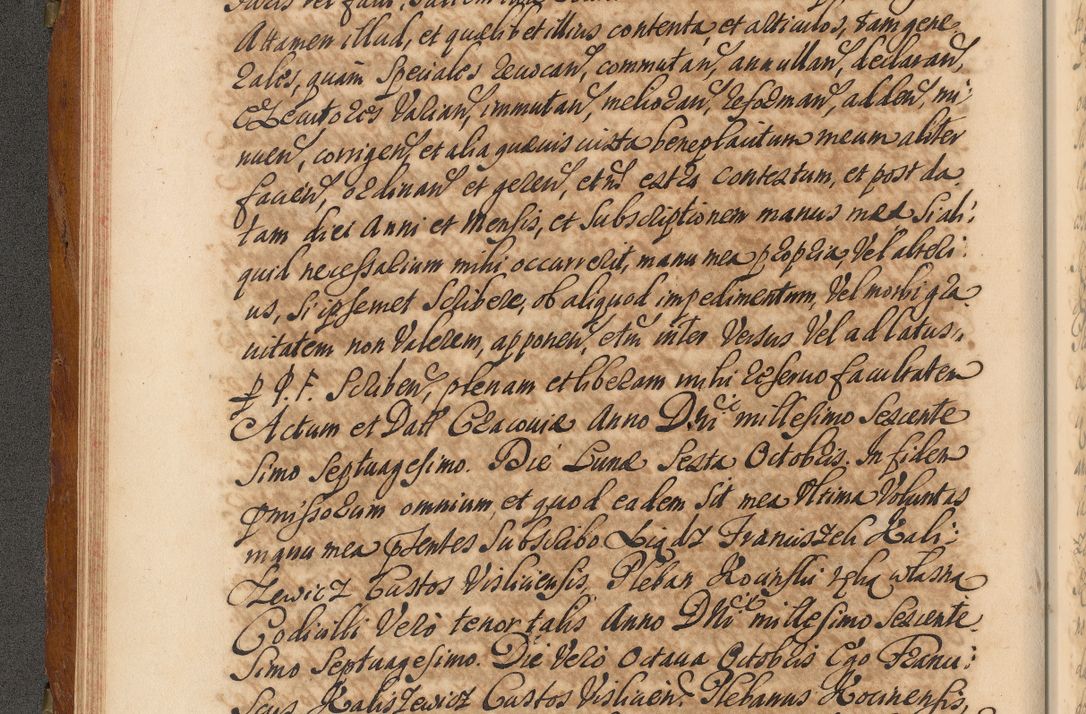 Attamen illud, et quælibet illius contenta, et articulos, tam gene
rales, quam Speciales revocan͂, commutan͂, annullan͂, declaran͂,
Executores Varian͂, immutan͂, melioran͂, reforman͂, adden͂, mi
nuen͂, corrigen͂, et alia quævis iuxta beneplacitum meum aliter
facien͂, ordinan͂ et geren͂, et extra contextum, et post da
tam diei Anni et Mensis, et Subscriptionem manus meæ Si ali:
quid necessarium mihi occurrerit, manu mea propria, Vel alteri:
us, Si ipsemet Scribere, ob aliquod impedimentum, Vel morbi gra
vitatem non Valerem, apponen͂, etm̃ inter Versus Vel ad latus,
p P. F. Scriben͂, plenam et liberam mihi reservo facultatem
Actum et Datt Cracoviæ Anno Dñi millesimo Sexcente
Simo Septuagesimo. Die Lunæ Sexta Octobris, In fidem
pmissorum omnium et quod eadem Sit mea Ultima Voluntas
manu mea pñtes Subscribo Xiądz Franciszek Kali:
Zewicz Custos Visliciensis, Pleban Kocinski ręką własna
Codicilli Verò tenor talis Anno Dñi millesimo Sexcente
Simo Septuagesimo. Die Verò Octava Octobris Ego Franci:
Scus Kaliszewicz Custos Vislicien͂. Plebanus Kocinensis,